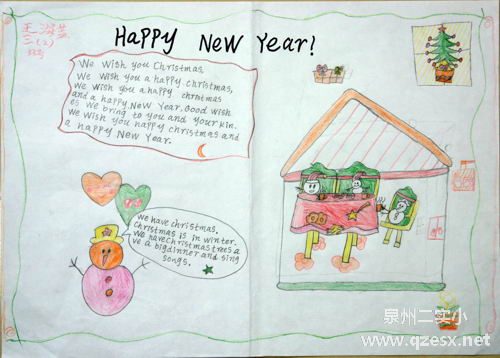 Happy New Year!
We Wish you Christmas,
We Wish you a happy Christmas,
We wish you a happy christmas
and a happy New Year. Good wish
es we bring to you and your kin.
We wish you happy christmas and
a happy New Year.
we have christmas.
Christmas is in winter.
We have christmas trees a
ve a big dinner and sing
songs.
泉州二实小
www.qzesx.net